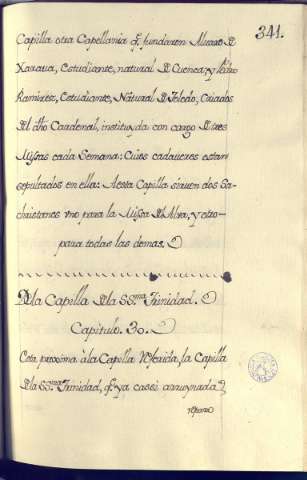 341.
Capilla otra Capellania q̃. fundaron Alvaro D
Xaraua, Estudiante, natural D Cuenca; y Pedro
Ramirez, Estudiante, Natural D Toledo, Criados
Dl dho Cardenal, instituyda con cargo D tres
Missas cada Semana: Cuios cadaueres estan
sepultados en ella: A esta Capilla siruen dos Sa-
christanes vno para la Missa Dl Alva, y otro-
para todas las demas.
D la Capilla D la SS.ma Trinidad.
Capitulo. 30.
Esta proxima à la Capilla Referida, la Capilla
D la SS.ma Trinidad, q̃. ya casi arruynada
reparo